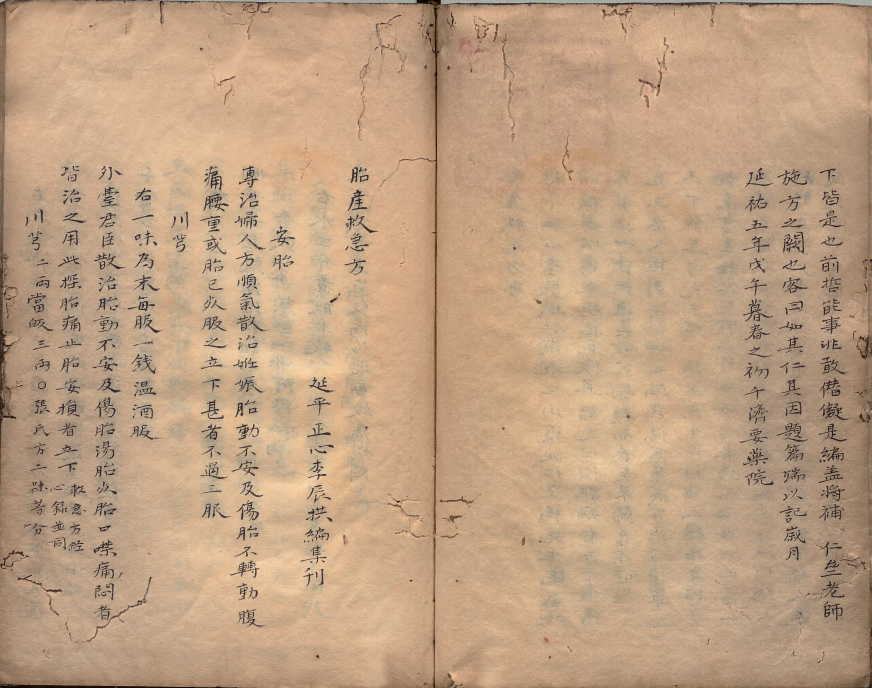 下皆是也前哲能事非敢僭儗是編盖将補 仁竺老師
施方之闕也客曰如其仁其因題篇端以記嵗月
延祐五年戊午暮春之初午濟要藥院
胎産救急方
延平正心李辰拱編集刊
安胎
専治婦人方順氣散治姙娠胎動不安及傷胎不轉動腹
痛腰重或胎已死服之立下甚者不過三服
川芎
右一味為末每服一錢温酒服
外臺君臣散治胎動不安及傷胎湯胎死胎口噤痛悶者
皆治之用此探胎痛止胎安損者立下 救急方經心錄並同
川芎二兩當皈三兩〇張氏方二味等分